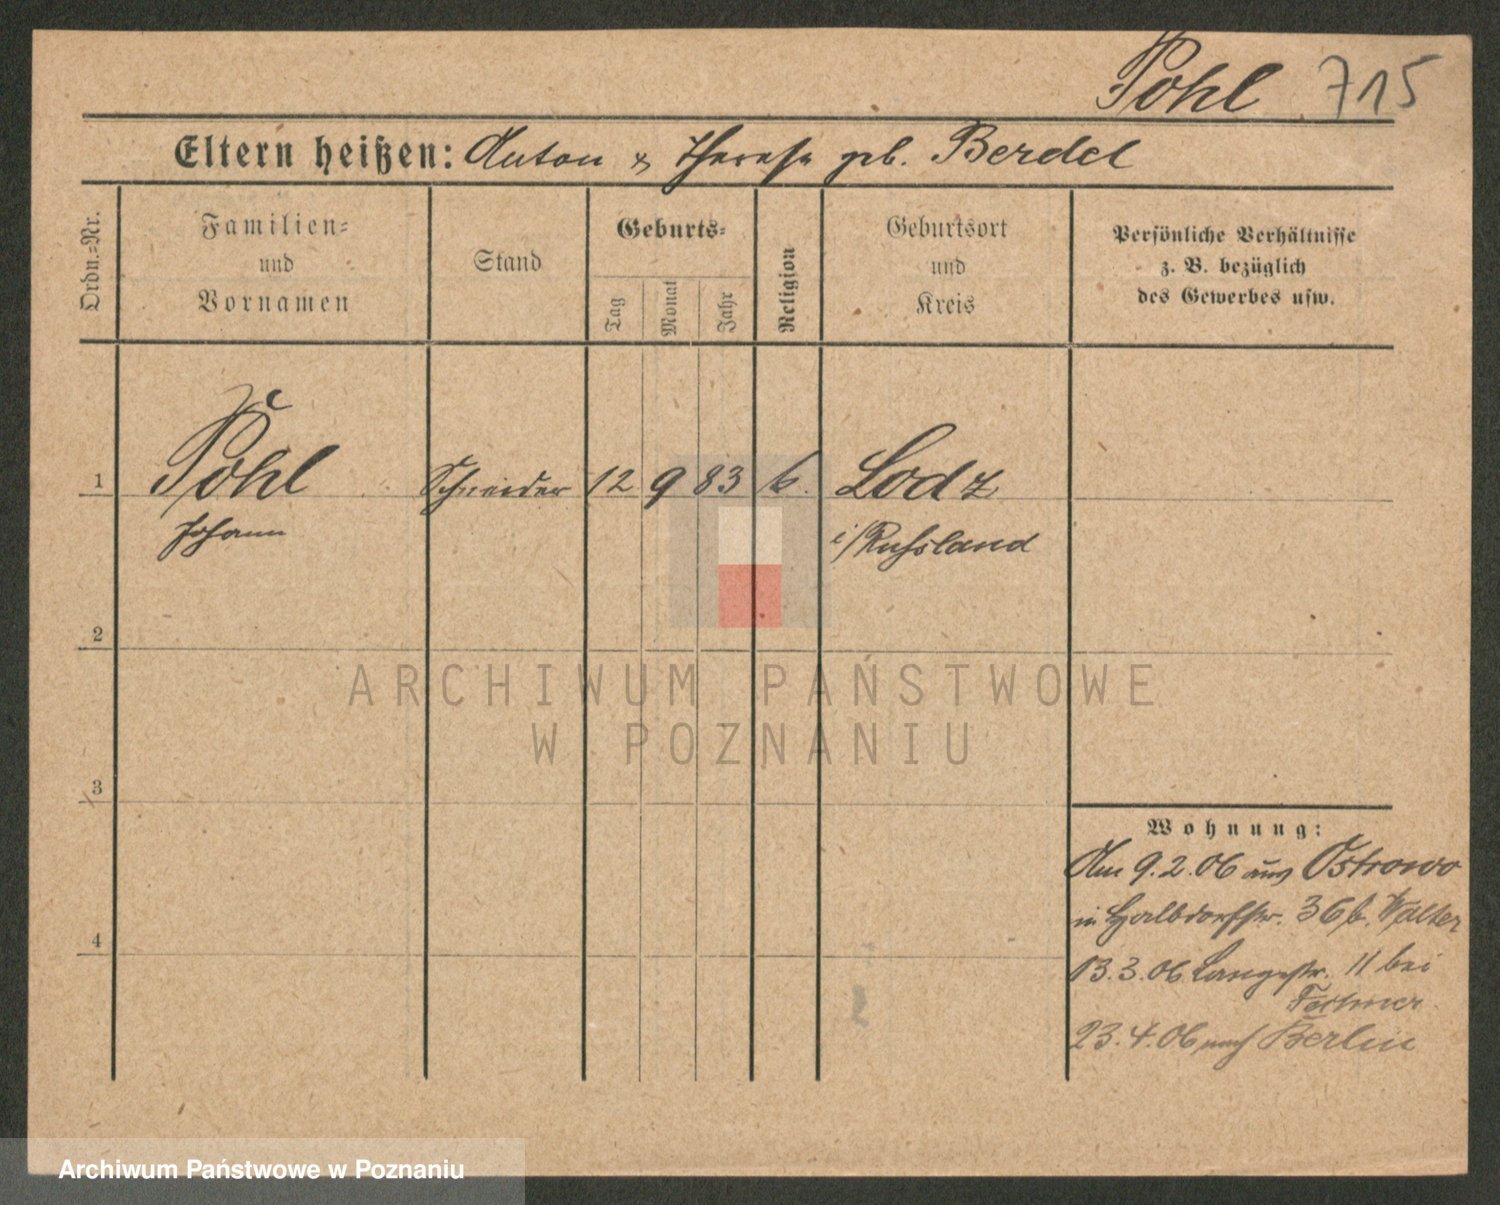 Pohl 715
Eltern heißen: Anton & Therese geb. Berdel
Ordn.-Nr.
Familien-
und
Vornamen
Stand
Geburts-
Tag
Monat
Jahr
Religion
Geburtsort
und
Kreis
Persönliche Verhältnisse
z. B. bezüglich
des Gewerbes usw.
1 Pohl Schneider 12 9 83 k. Lodz
Johann i/Russland
2
3
4
ARCHIWUM PAŃSTWOWE
W POZNANIU
Wohnung:
Am 9.2.06 aus Ostrowo
in Halbdorfstr. 36 b. Walter
13.3.06 Langestr. 11 bei
23.4.06 nach Berlin
Archiwum Państwowe w Poznaniu